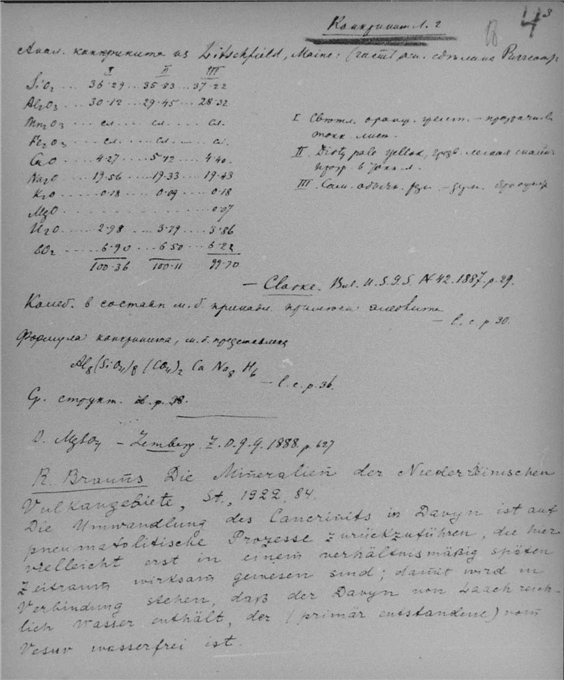 Канкринит Л. 2
4 3
Анал. канкринита из Litschfield, Maine.
I II III
SiO₂ 36.29 35.83 37.22
Al₂O₃ 30.12 29.45 28.32
Mn₂O₃ сл. сл. сл.
Fe₂O₃ сл. сл. сл.
CaO 4.27 5.12 4.40
Na₂O 19.56 19.33 19.43
K₂O 0.18 0.09 0.18
MgO 0.07
H₂O 2.98 3.79 3.86
CO₂ 6.90 6.50 6.22
100.36 100.11 99.70
I Светл. оранж.
тонк. лист.
II Dirty pale yellow,
III
— Clarke. Bul. U.S.G.S. N 42. 1887. p. 29.
Колеб. в составе м. б.
— l. c. p. 30.
Формула канкринита, м. б. представлена
Al₈(SiO₄)₈(CO₄)₂ Ca Na₈ H₆
— l. c. p. 36.
Ср. структ. p. 38.
Lemberg. Z. D. g. G. 1888. p. 627
R. Brauns Die Mineralien der Niederrheinischen
Vulkangebiete, St., 1922, 84.
Die Umwandlung des Cancrinits in Davyn ist auf
pneumatolitische Prozesse zurückzuführen, die hier
vielleicht erst in einem verhältnismäßig späten
Zeitraum wirksam gewesen sind; damit wird in
Verbindung stehen, daß der Davyn von Laach reich-
lich Wasser enthält, der (primär entstandene) vom
Vesuv wasserfrei ist.